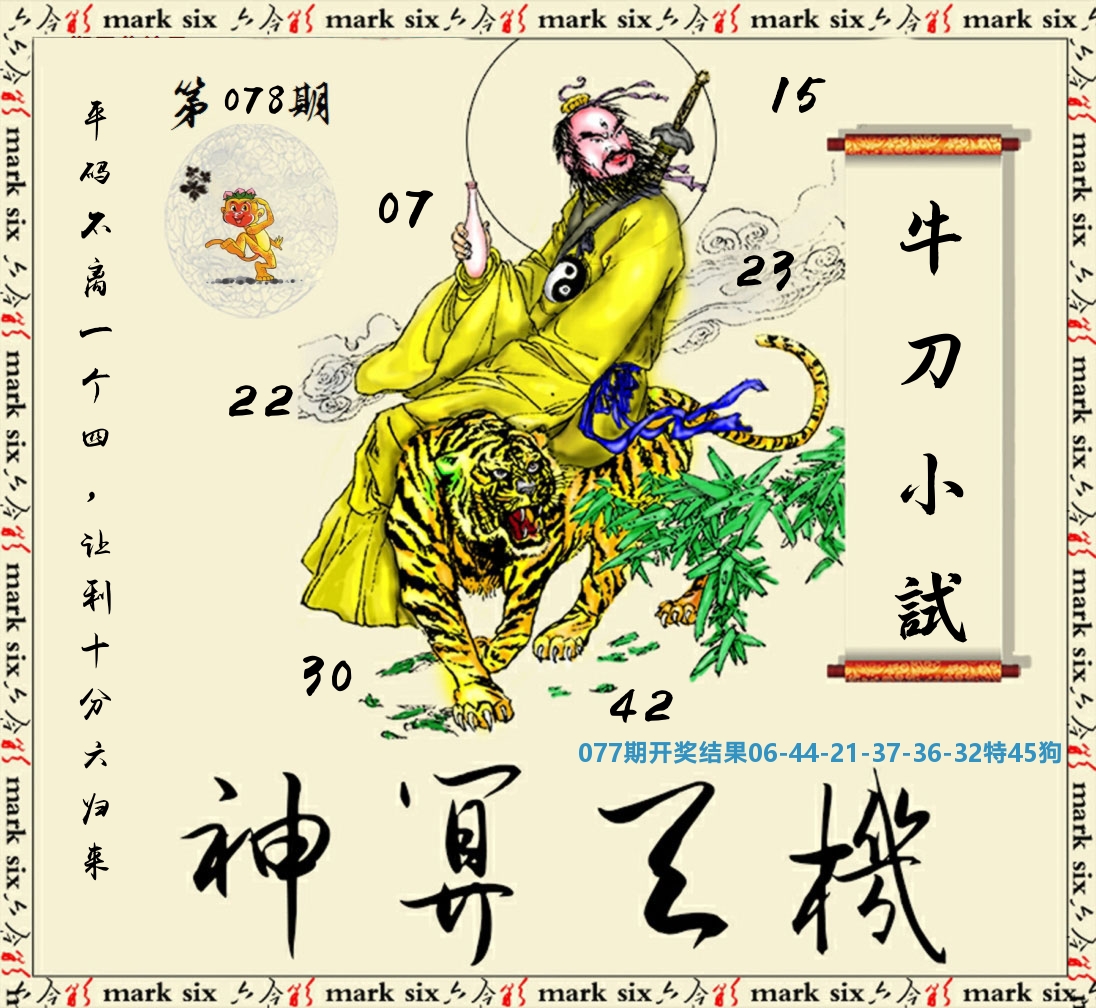 mark six 今彩 mark six 今彩 mark six 今彩 mark six 今彩 mark six
第078期
平码不离一个四，让利十分六归来
15
07
23
22
30
42
牛刀小試
077期开奖结果06-44-21-37-36-32特45狗
神算天機
mark six 今彩 mark six 今彩 mark six 今彩 mark six 今彩 mark six